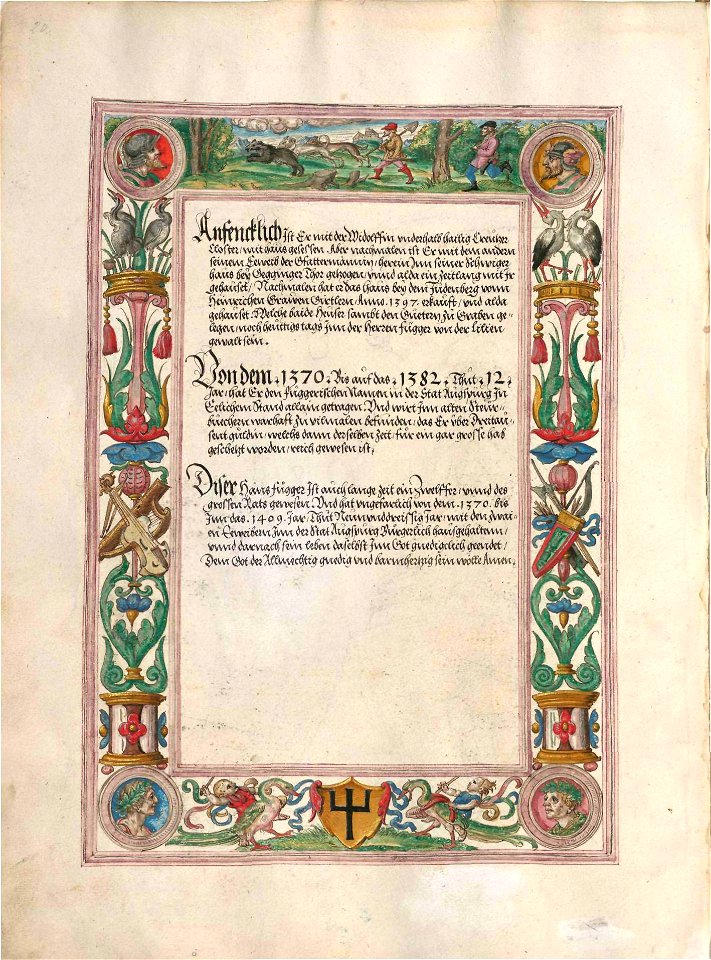 20.
Anfencklich Ist Er mit der Widolffin vnderhalb hailig Creützer
Closter, mit haus gesessen. Aber nachmalen ist Er mit dem andern
seinem Eeweib der Gfattermannin, herein Inn seiner Schwiger
haus bey Gegginger Thor gezogen, vnnd alda ein Zeitlang mit Ir
gehauset, Nachmalen hat er das haus bey dem Judenberg vonn
Heinrichen Grawen Gürtlern, Anno. 1397. erkaufft, vnd alda
gehauset. Welche baide Heüser sambt den Güetern Zu Graben ge-
legen, noch heüttigs tags Inn der Herren Fugger von der Lilien
gewalt sein.
Von dem. 1370. Bis auf das. 1382. Thüt. 12.
Jar, hat Er den Fuggerischen Namen in der Stat Augspurg In
Eelichem Stand allain getragen. Vnd wirt Inn alten Steür
büechern warhafft Zu vilmalen befunden, das Er über Dreitau-
sent guldin, welchs dann derselben Zeit, für ein gar grosse hab
geschetzt worden, reich gewesen ist,
Diser Hanns Fugger Ist auch lange Zeit ein Zwelffer, vnnd des
grossen Rats gewesen. Vnd hat vngefarlich von dem. 1370. bis
Inn das. 1409. Jar, Thüt Neinunddreissig Jar, mit den Zwai-
en Eeweibern Inn der Stat Augspurg Burgerlich hausgehalten,
vnnd darnach sein leben daselbst Inn Got gnediglich geendet,
Dem Got der Allmechtig gnedig vnd barmhertzig sein wölle Amen.